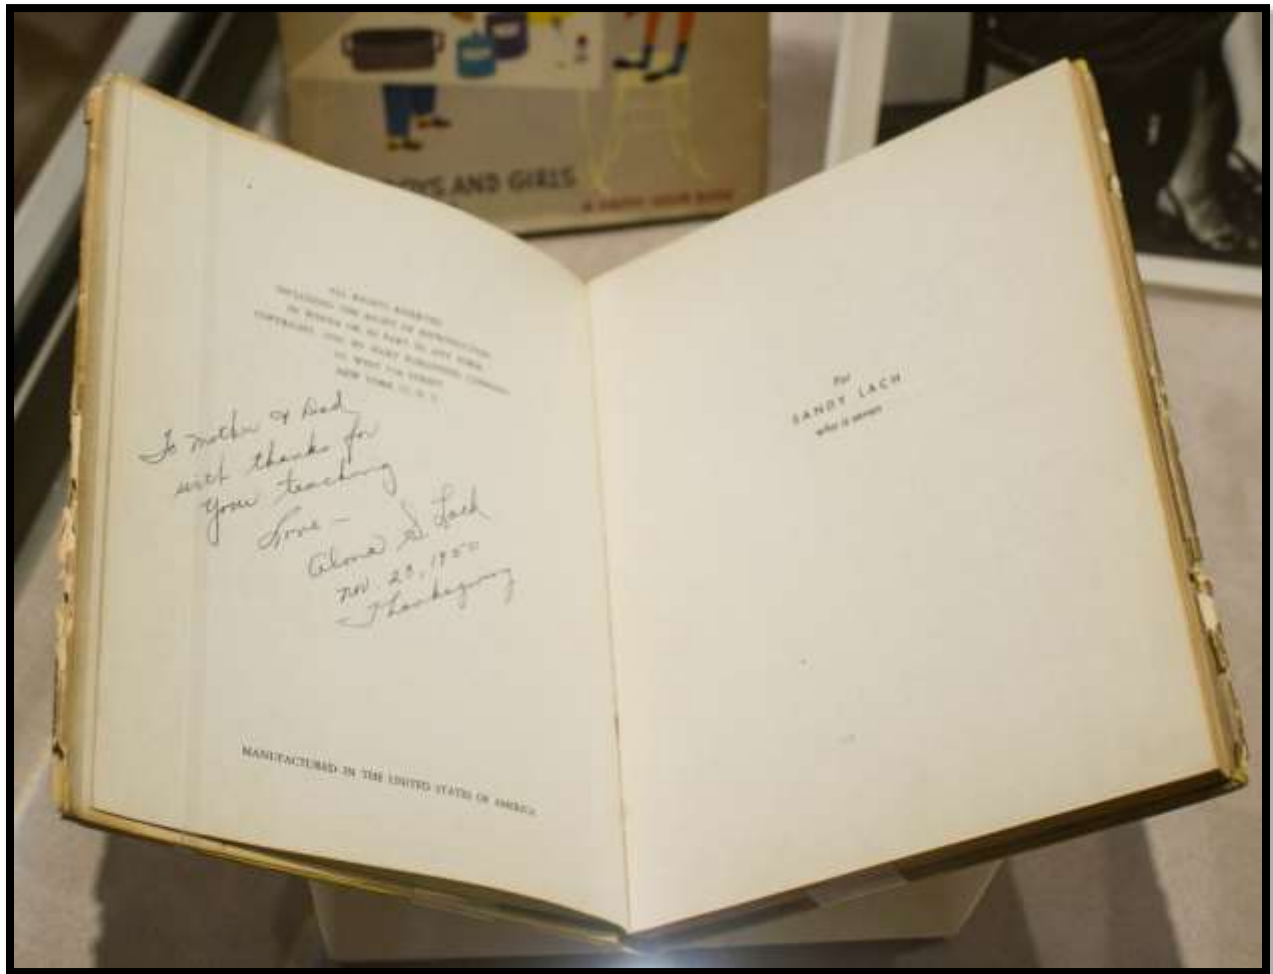 OYS AND GIRLS
A HAPPY HOUR BOOK
ALL RIGHTS RESERVED
INCLUDING THE RIGHT OF REPRODUCTION
IN WHOLE OR IN PART IN ANY FORM
COPYRIGHT, 1950, BY HART PUBLISHING COMPANY
NEW YORK 11, N. Y.
To Mother & Dad
with thanks for
your teaching
Love –
Alma S. Lach
Nov. 23, 1950
Thanksgiving
MANUFACTURED IN THE UNITED STATES OF AMERICA
For
SANDY LACH
who is seven